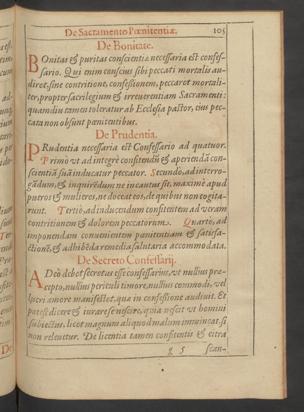 De Sacramento Pœnitentiæ. 105
De Bonitate.
BOnitas & puritas conscientiæ necessaria est confes-
sario. Qui enim conscius sibi peccati mortalis au-
diret, sine contritione, confessionem, peccaret mortali-
ter, propter sacrilegium & irreuerentiam Sacramenti:
quamdiu tamen toleratur ab Ecclesia pastor, eius pec-
cata non obsunt pœnitentibus.
De Prudentia.
PRudentia necessaria est Confessario ad quatuor.
Primò vt ad integrè confitendū & aperiendā con-
scientiā suā inducatur peccator. Secundo, ad interro-
gādum, & inquirēdum ne incautus sit, maximè apud
pueros & mulieres, ne doceat eos, de quibus non cogita-
runt. Tertiò, ad inducendum confitentem ad veram
contritionem & dolorem peccatorum. Quartò, ad
imponendam conuenientem pœnitentiam & satisfa-
ctionē, & adhibēda remedia salutaria accommodata.
De Secreto Confessarij.
ADeò debet secretus esse confessarius, vt nullius præ-
cepto, nullius periculi timore, nullius commodi, vel
lucri amore manifestet, qua in confessione audiuit. Et
potest dicere & iurare se nescire, quia nescit vt homini
subiectus, licet magnum aliquod malum immineat, si
non reletur. De licentia tamen confitentis & citra
g 5 scan-